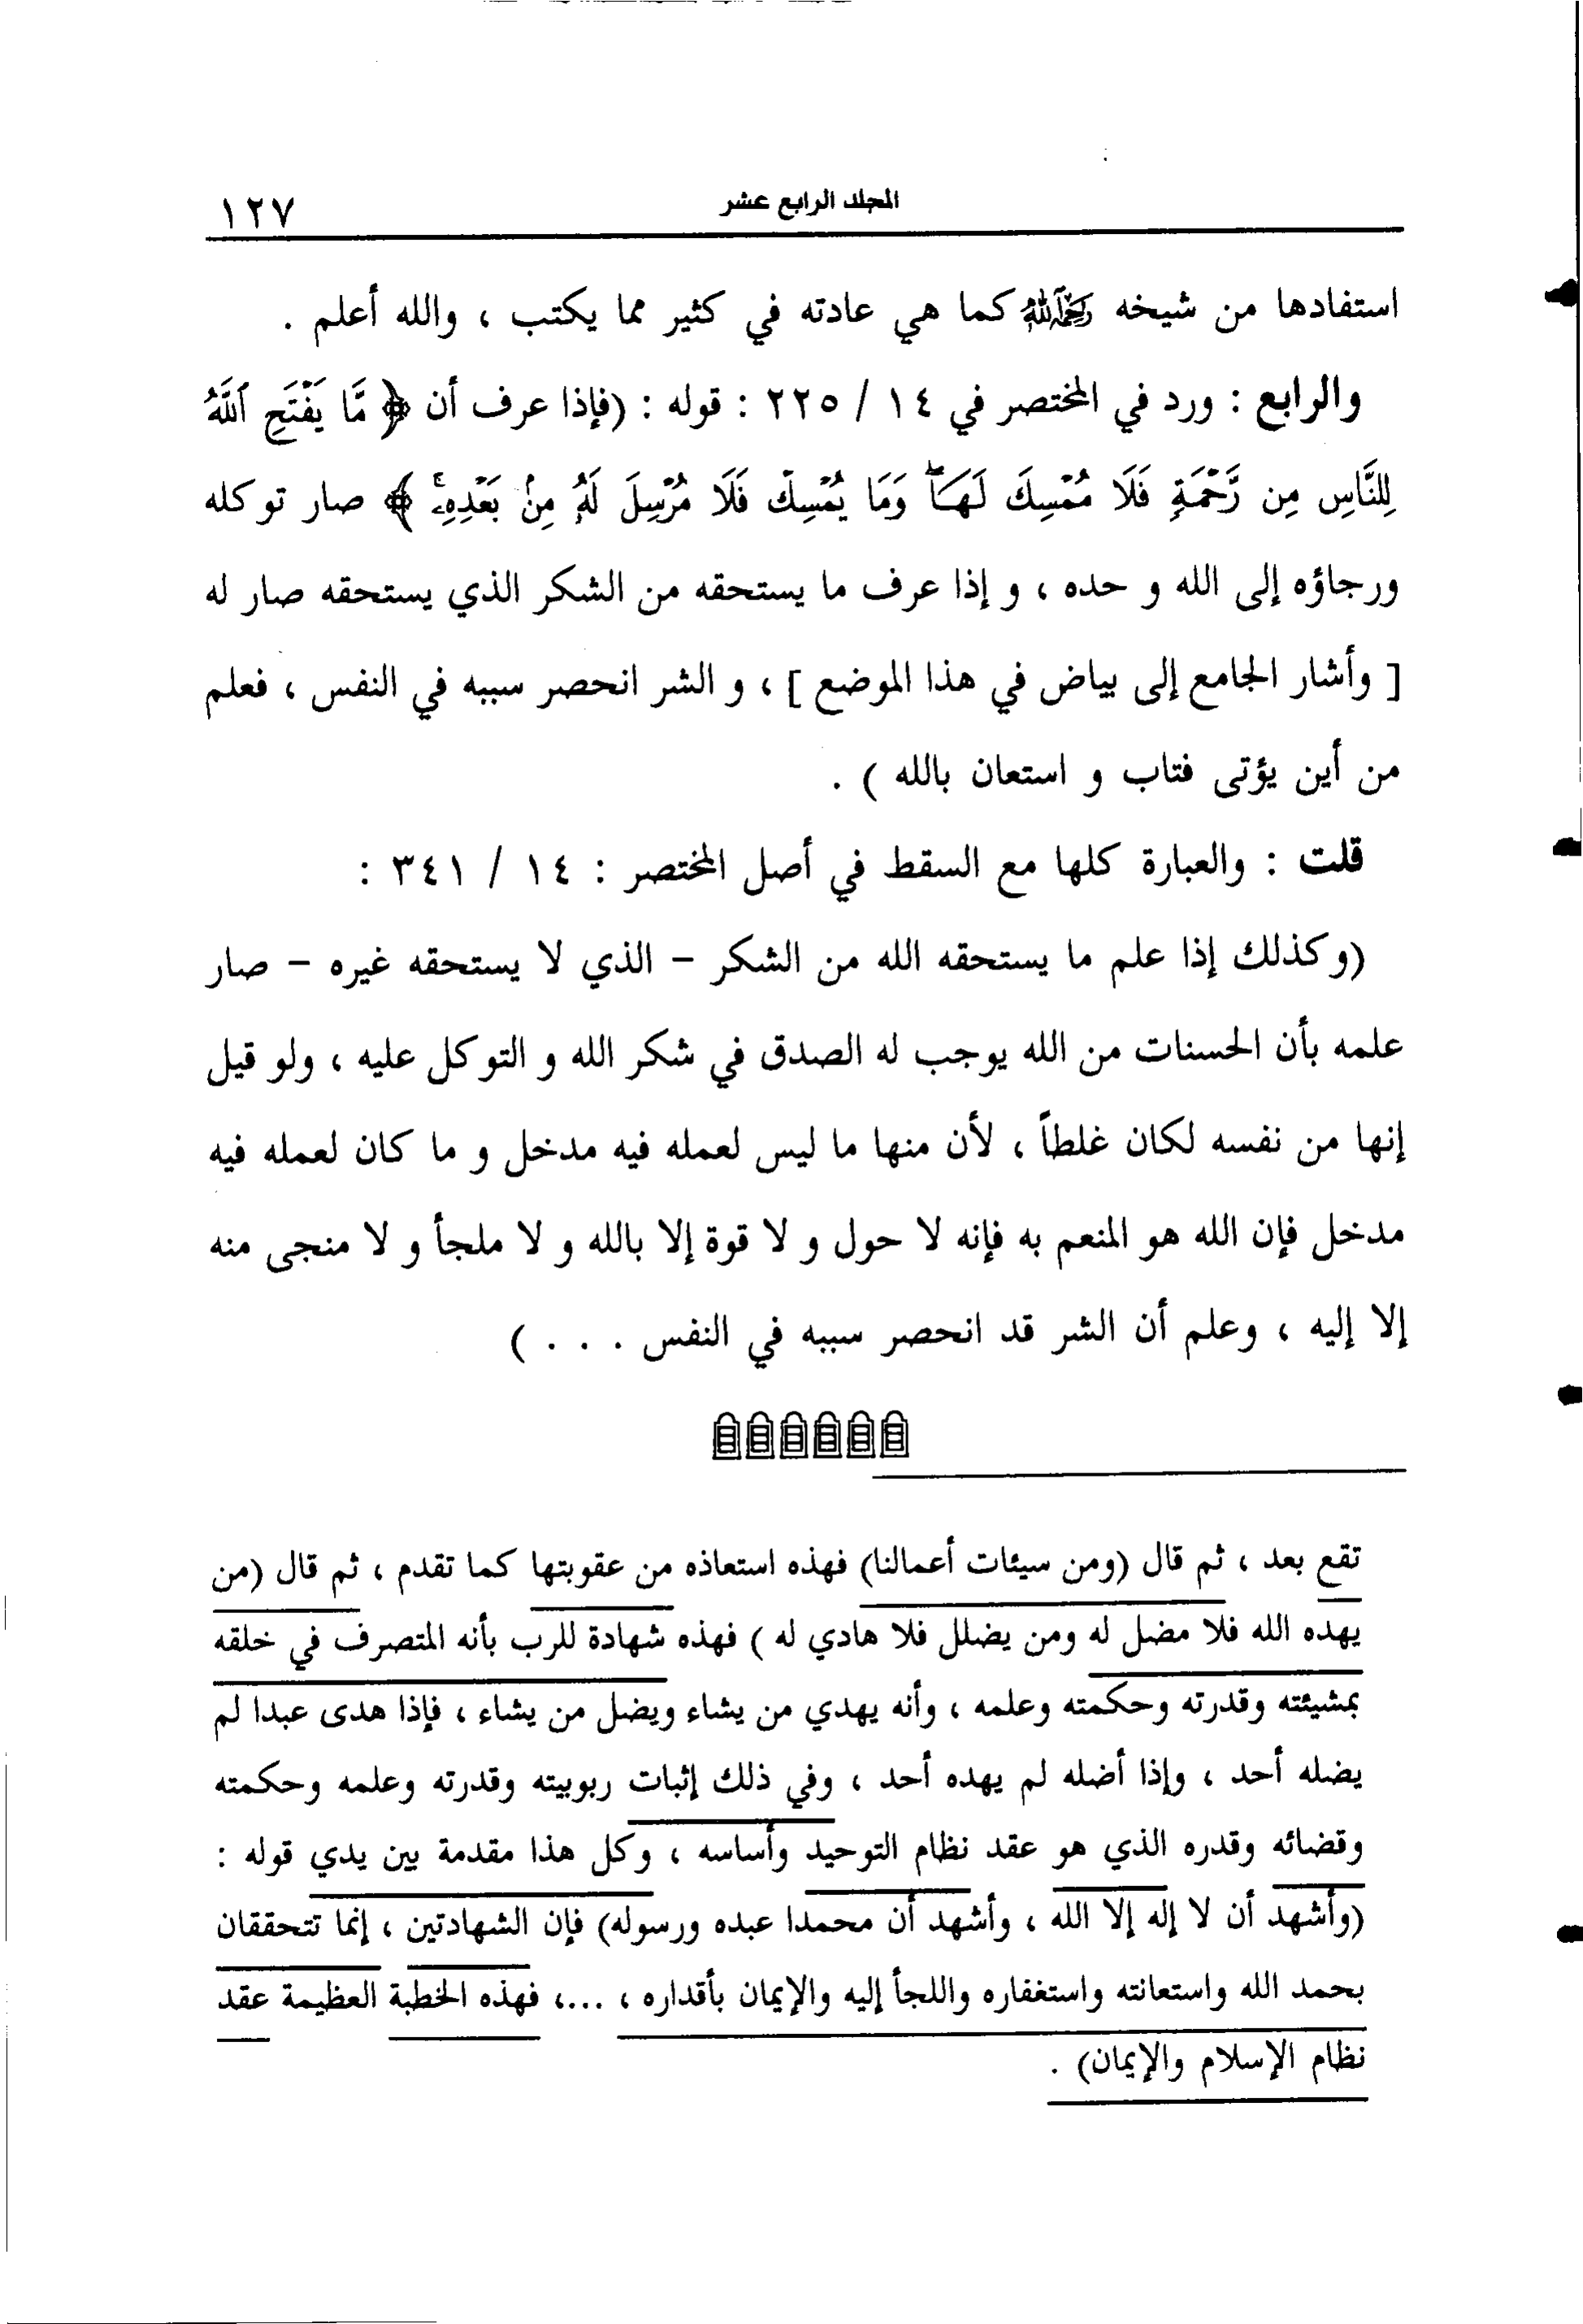 المجلد الرابع عشر
١٢٧
استفادها من شيخه رحمه الله كما هي عادته في كثير مما يكتب ، والله أعلم .
والرابع : ورد في المختصر في ١٤ / ٢٢٥ : قوله : (فإذا عرف أن ﴿ مَّا يَفْتَحِ ٱللَّهُ
لِلنَّاسِ مِن رَّحْمَةٍ فَلَا مُمْسِكَ لَهَا ۖ وَمَا يُمْسِكْ فَلَا مُرْسِلَ لَهُۥ مِنۢ بَعْدِهِۦ ۚ ﴾ صار توكله
ورجاؤه إلى الله و حده ، و إذا عرف ما يستحقه من الشكر الذي يستحقه صار له
[ وأشار الجامع إلى بياض في هذا الموضع ] ، و الشر انحصر سببه في النفس ، فعلم
من أين يؤتى فتاب و استعان بالله ) .
قلت : والعبارة كلها مع السقط في أصل المختصر : ١٤ / ٣٤١ :
(وكذلك إذا علم ما يستحقه الله من الشكر – الذي لا يستحقه غيره – صار
علمه بأن الحسنات من الله يوجب له الصدق في شكر الله و التوكل عليه ، ولو قيل
إنها من نفسه لكان غلطاً ، لأن منها ما ليس لعمله فيه مدخل و ما كان لعمله فيه
مدخل فإن الله هو المنعم به فإنه لا حول و لا قوة إلا بالله و لا ملجأ و لا منجى منه
إلا إليه ، وعلم أن الشر قد انحصر سببه في النفس . . . )
تقع بعد ، ثم قال (ومن سيئات أعمالنا) فهذه استعاذه من عقوبتها كما تقدم ، ثم قال (من
يهده الله فلا مضل له ومن يضلل فلا هادي له ) فهذه شهادة للرب بأنه المتصرف في خلقه
بمشيئته وقدرته وحكمته وعلمه ، وأنه يهدي من يشاء ويضل من يشاء ، فإذا هدى عبدا لم
يضله أحد ، وإذا أضله لم يهده أحد ، وفي ذلك إثبات ربوبيته وقدرته وعلمه وحكمته
وقضائه وقدره الذي هو عقد نظام التوحيد وأساسه ، وكل هذا مقدمة بين يدي قوله :
(وأشهد أن لا إله إلا الله ، وأشهد أن محمدا عبده ورسوله) فإن الشهادتين ، إنما تتحققان
بحمد الله واستعانته واستغفاره واللجأ إليه والإيمان بأقداره ، ...، فهذه الخطبة العظيمة عقد
نظام الإسلام والإيمان) .